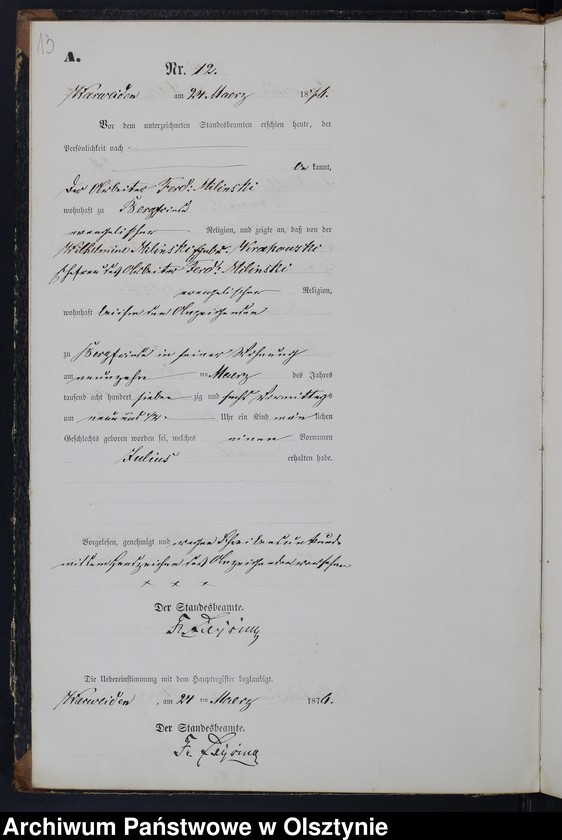 13
A.
Nr. 12.
Karweiden am 24 Maerz 1876.
Vor dem unterzeichneten Standesbeamten erschien heute, der
Persönlichkeit nach
be kannt,
der Arbeiter Ferd. Milinski
wohnhaft zu Bergfriede
evangelischer Religion, und zeigte an, daß von der
Wilhelmine Milinski geb.
Ehefrau des Arbeiter Ferd. Milinski
evangelischer Religion,
wohnhaft bei dem Anzeigenden
zu Bergfriede in seiner Wohnung
am neunzehn ten Maerz des Jahres
tausend acht hundert sieben zig und sechs Vormittags
um neun und 1/2 Uhr ein Kind männ lichen
Geschlechts geboren worden sei, welches einen Vornamen
Julius erhalten habe.
Vorgelesen, genehmigt und wegen Schreibensunkunde
mit dem Handzeichen des Anzeigenden versehen
+ + +
Der Standesbeamte.
Fr.
Die Uebereinstimmung mit dem Hauptregister beglaubigt.
Karweiden, am 24 ten Maerz 1876.
Der Standesbeamte.
Fr.
Archiwum Państwowe w Olsztynie